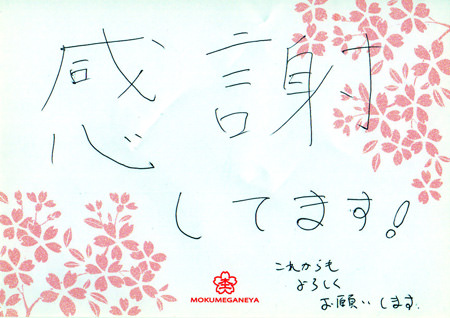 感謝
してます!
これからも
よろしく
お願いします。
MOKUMEGANEYA